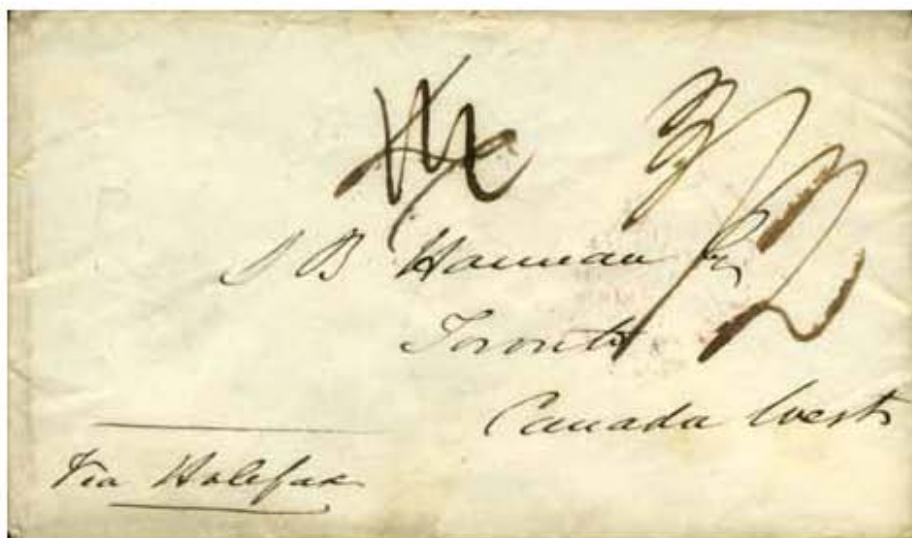 3/2
S B Harman Esq
Toronto
Canada West
Via Halifax